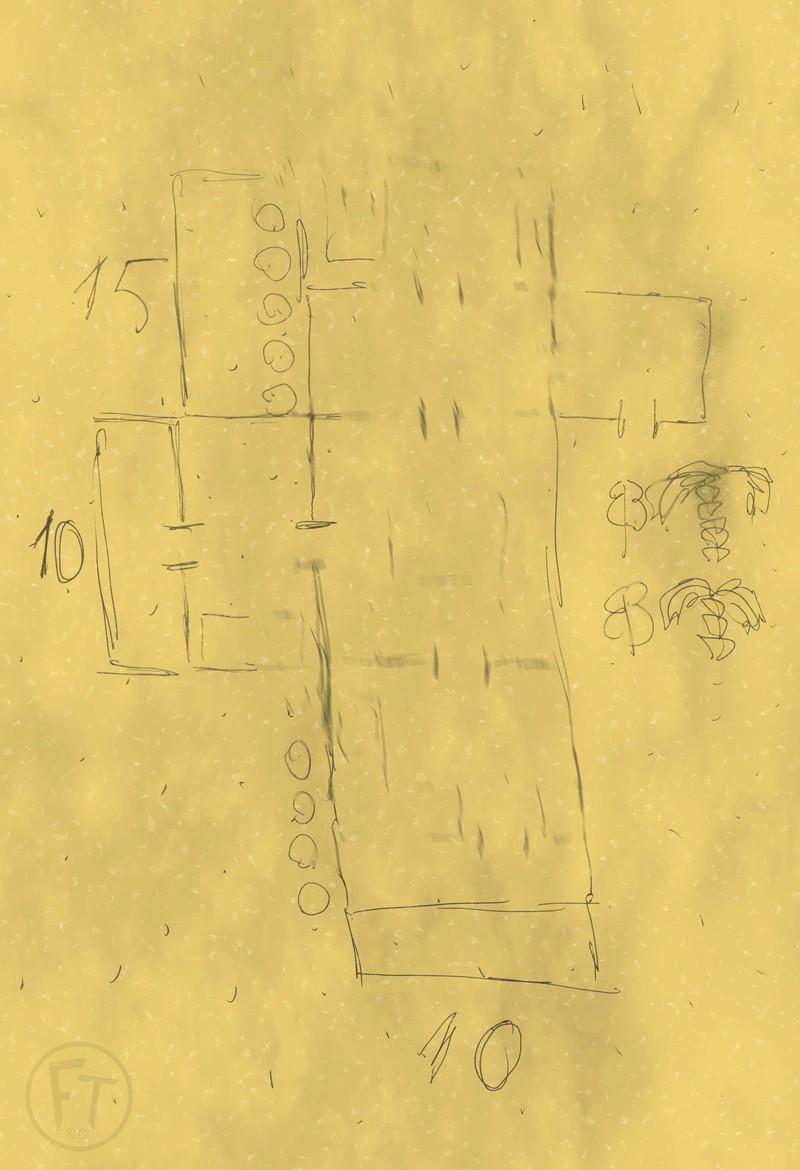 15
10
10
FT